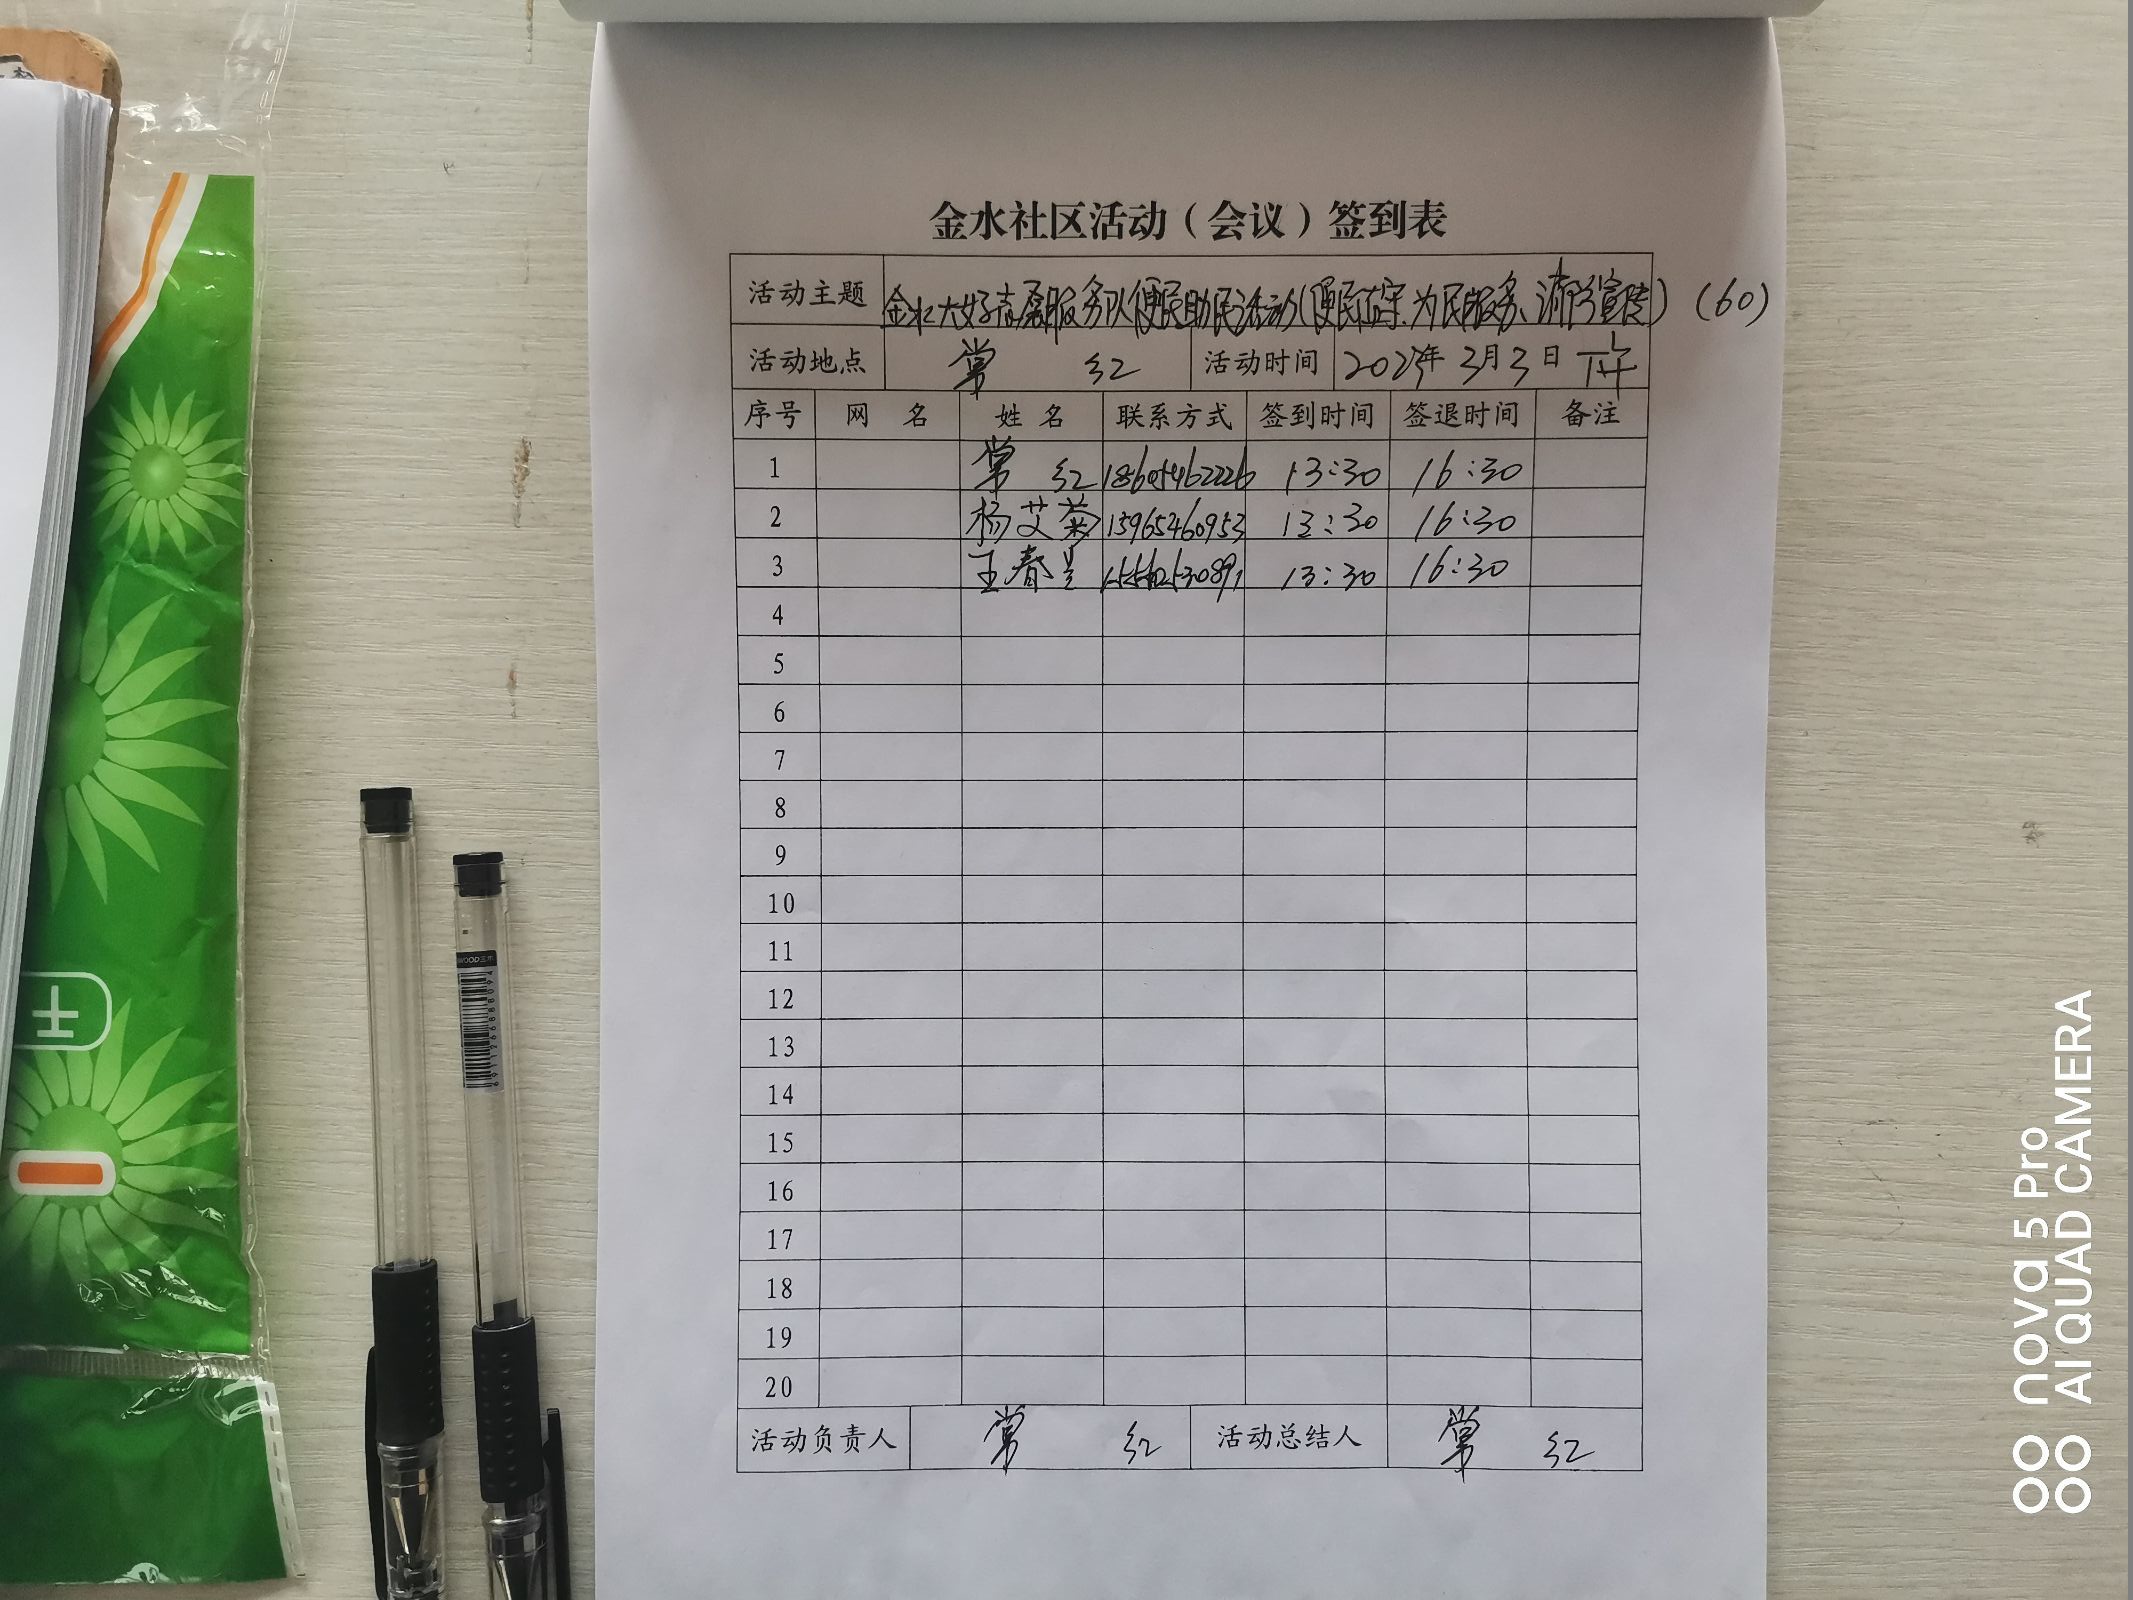 金水社区活动（会议）签到表
活动主题 金水大好志愿服务队便民助民活动(便民值守、为民服务、清污宣传)(60)
活动地点 常 红 活动时间 2025年 3月3日 下午
序号 网 名 姓 名 联系方式 签到时间 签退时间 备注
1 常 红 18605462226 13:30 16:30
2 杨艾菊 15965460953 13:30 16:30
3 王春 13:30 16:30
4
5
6
7
8
9
10
11
12
13
14
15
16
17
18
19
20
活动负责人 常 红 活动总结人 常 红
6911268880
nova 5 Pro
AI QUAD CAMERA